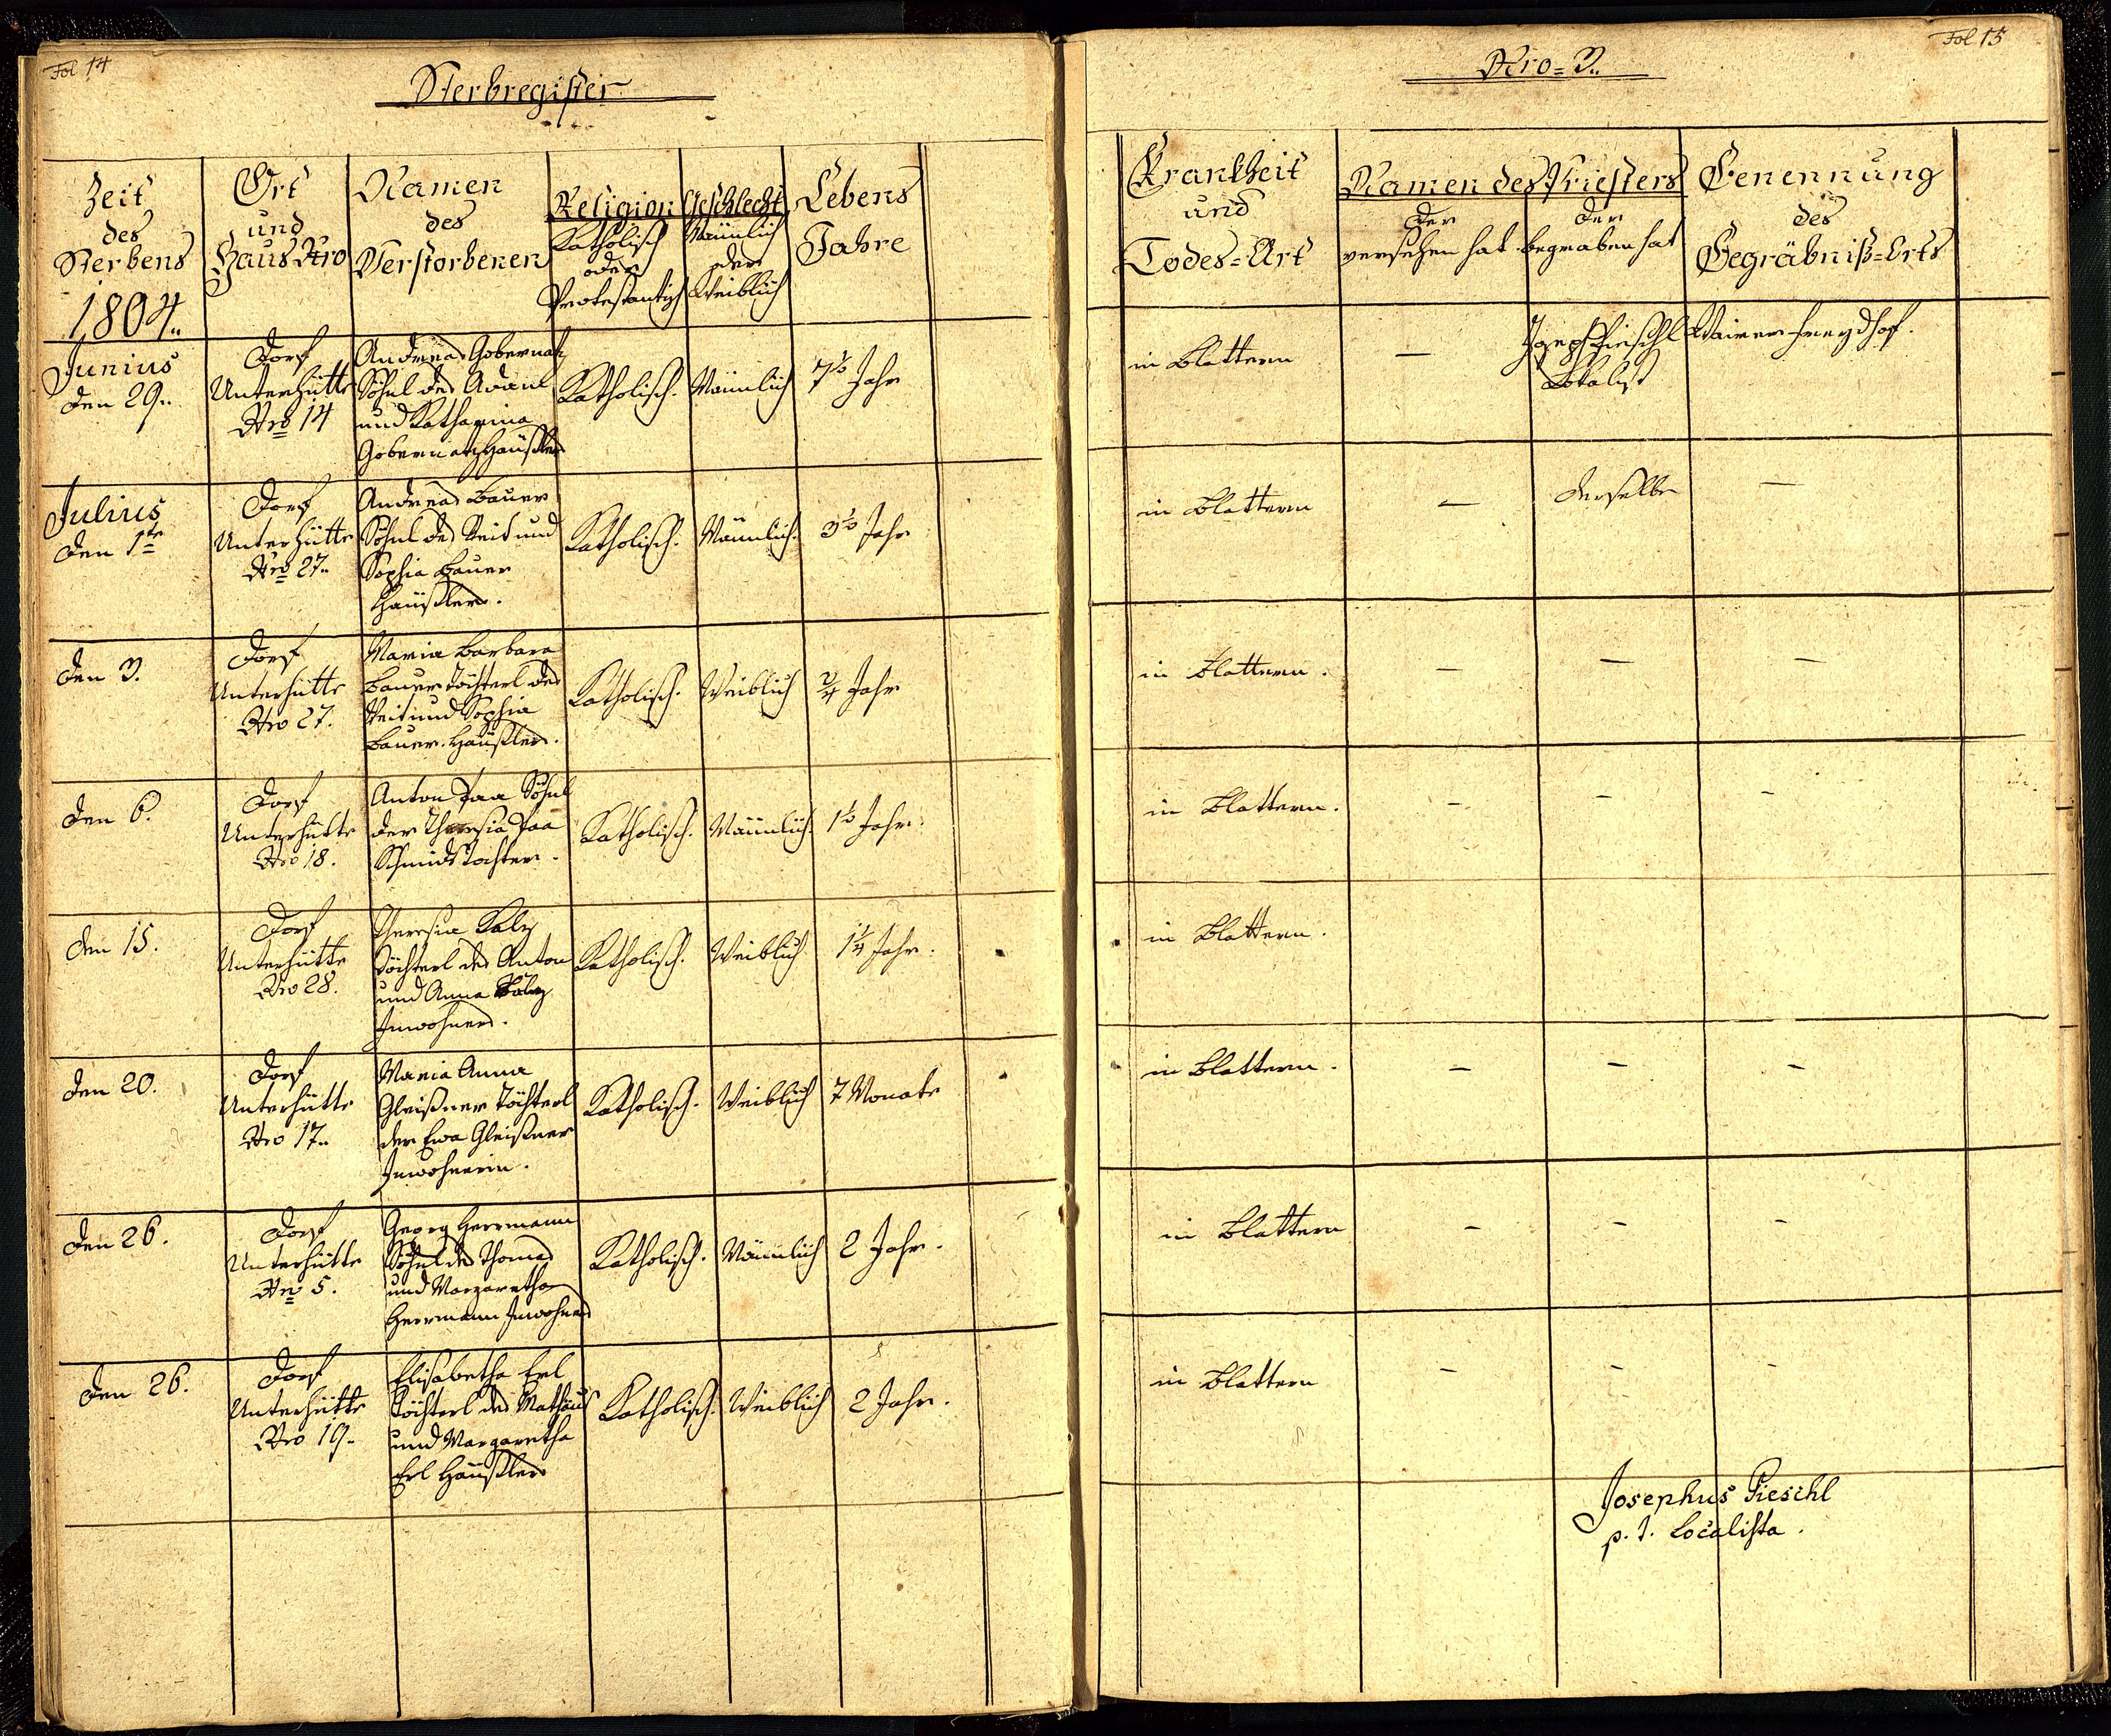 Fol 14
Sterbregister
Zeit
des
Sterbens
1804..
Ort
und
Haus Nro
Namen
des
Verstorbenen
Religion
Katholisch
oder
Protestantisch
Geschlecht
Männlich
oder
Weiblich
Lebens
Jahre
Junius
den 29..
Dorf
Unterhütte
Nro 14
Andreas Gobernatz
Söhnl des Adam
und Katharina
Gobernatz Häußlers
Katholisch.
Männlich
7½ Jahr
Julius
den 1te
Dorf
Unterhütte
Nro 27..
Andreas Bauer
Söhnl des Veit und
Sophia Bauer
Häußlers.
Katholisch.
Männlich.
3½ Jahr
den 3.
Dorf
Unterhütte
Nro 27.
Maria Barbara
Bauer Töchterl des
Veit und Sophia
Bauer Häußlers.
Katholisch.
Weiblich
¾ Jahr
den 6.
Dorf
Unterhütte
Nro 18.
Anton Söhnl
der Theresia
Schmids Tochter.
Katholisch.
Männlich.
1½ Jahr.
den 15.
Dorf
Unterhütte
Nro 28.
Theresia
Töchterl des Anton
und Anna
Inwohners.
Katholisch.
Weiblich
1¼ Jahr.
den 20.
Dorf
Unterhütte
Nro 17..
Maria Anna
Gleißner Töchterl
der Eva Gleißner
Inwohnerin.
Katholisch.
Weiblich
7 Monate
den 26.
Dorf
Unterhütte
Nro 5.
Georg Herrmann
Söhnl des Thomas
und Margaretha
Herrmann Inwohners
Katholisch.
Männlich
2 Jahr.
den 26.
Dorf
Unterhütte
Nro 19..
Elisabetha Erl
Töchterl des Mathäus
und Margaretha
Erl Häußlers
Katholisch.
Weiblich
2 Jahr.
Fol 15
Nro = 3..
Krankheit
und
Todes=Art
Namen des Priesters
der
versehen hat
der
begraben hat
Benennung
des
Begräbniß=Orts
in Blattern
—
Joseph Pieschl
Lokalist
Waier Freydhof.
in Blattern
—
derselbe
—
in Blattern.
—
—
—
in Blattern.
—
—
—
in Blattern.
in Blattern.
—
—
—
in Blattern
—
—
—
in Blattern
—
—
—
Josephus Pieschl
p. t. Localista.